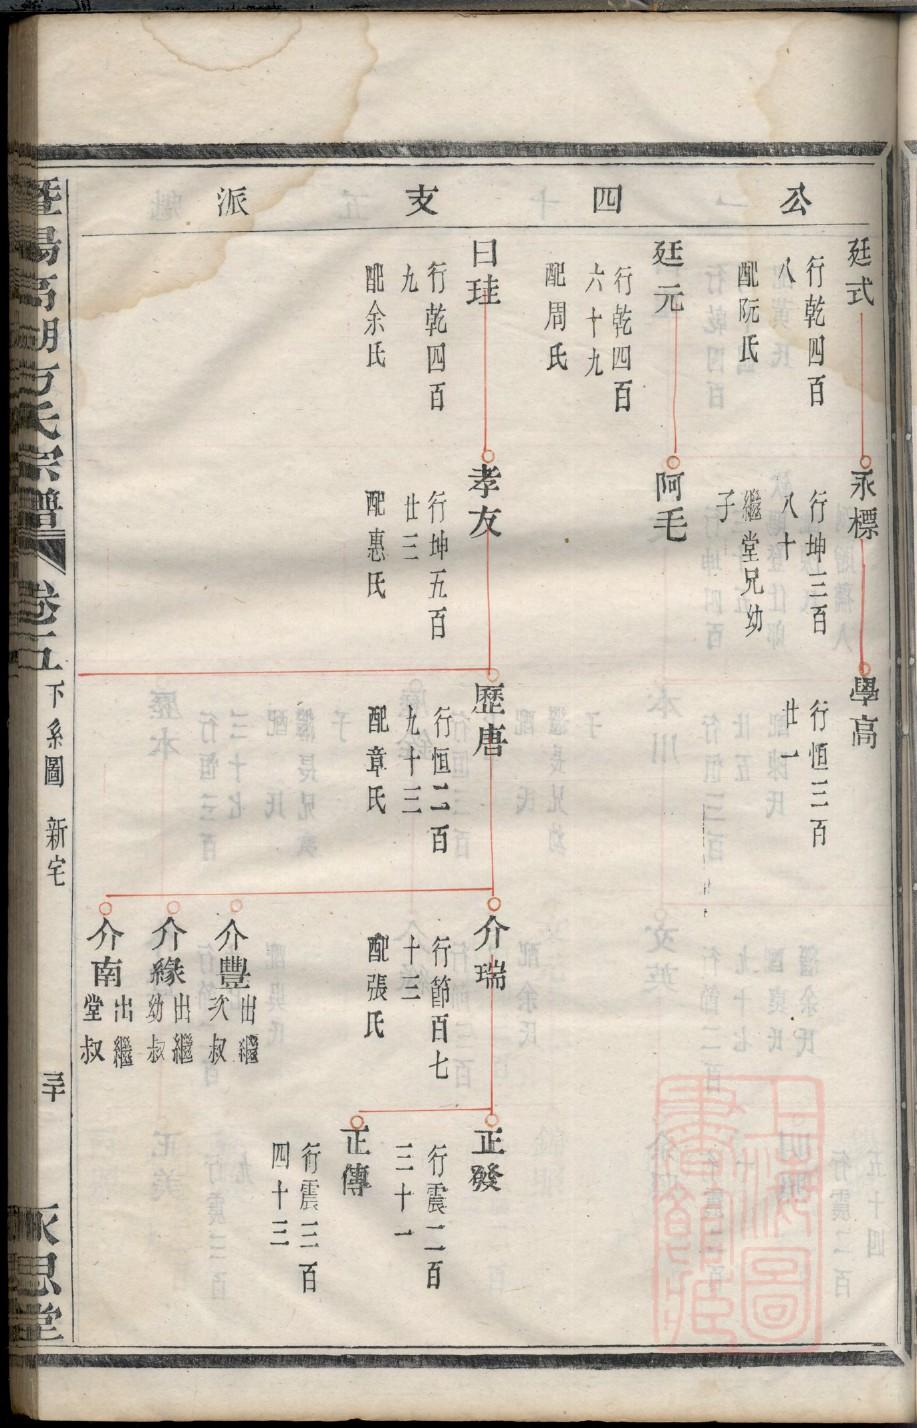 公四支派
廷式
行乾四百
八
配阮氏
永標
行坤三百
八十
繼堂兄幼
子
學高
行恒三百
廿一
廷元
行乾四百
六十九
配周氏
阿毛
曰珪
行乾四百
九
配余氏
孝友
行坤五百
廿三
配惠氏
歷唐
行恒二百
九十三
配章氏
介瑞
行節百七
十三
配張氏
正發
行震二百
三十一
正傳
行震三百
四十三
介豐
出繼
次叔
介緣
出繼
幼叔
介南
出繼
堂叔
暨陽高湖方氏宗譜
卷二五
下系圖
新宅
三十
永思堂